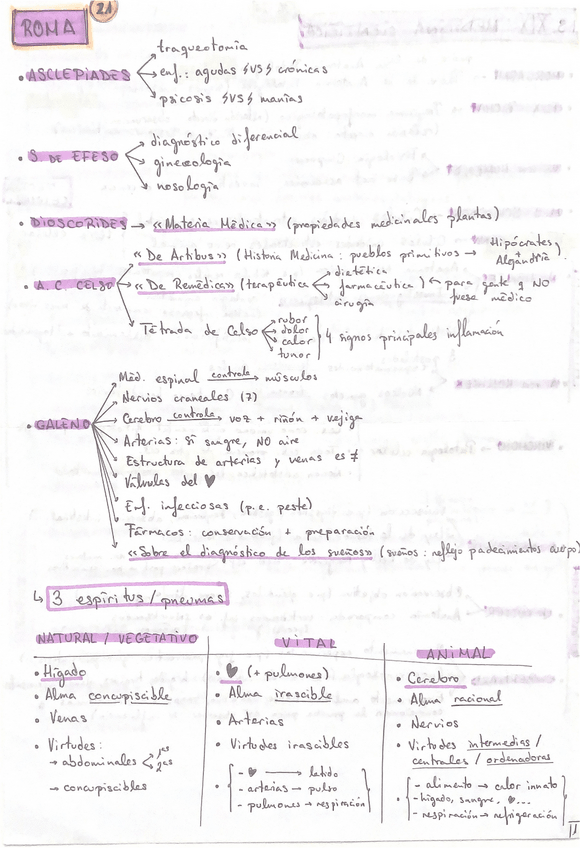 ROMA
21
• ASCLEPIADES
traqueotomía
enf.: agudas vs crónicas
psicosis vs manías
• S. DE EFESO
diagnóstico diferencial
ginecología
nosología
• DIOSCORIDES → «Materia Médica» (propiedades medicinales plantas)
• A. C. CELSO
«De Artibus» (Historia Medicina: pueblos primitivos → Hipócrates + Alejandría)
«De Remedica» (terapéutica
dietética
farmacéutica
cirugía
) ← para gente q NO fuese médico
Tétrada de Celso
rubor
dolor
calor
tumor
4 signos principales inflamación
• GALENO
Méd. espinal controla → músculos
Nervios craneales (7)
Cerebro controla → voz + riñón + vejiga
Arterias: sí sangre, NO aire
Estructura de arterias y venas es ≠
Válvulas del ♥
Enf. infecciosas (p.e. peste)
Fármacos: conservación + preparación
«Sobre el diagnóstico de los sueños» (sueños: reflejo padecimientos cuerpo)
↳ 3 espíritus/pneumas
NATURAL / VEGETATIVO
• Hígado
• Alma concupiscible
• Venas
• Virtudes:
→ abdominales < 1as 2as
→ concupiscibles
VITAL
• ♥ (+ pulmones)
• Alma irascible
• Arterias
• Virtudes irascibles
• - ♥ → latido
- arterias → pulso
- pulmones → respiración
ANIMAL
• Cerebro
• Alma racional
• Nervios
• Virtudes intermedias /
centrales / ordenadoras
• - alimento → calor innato
- hígado, sangre, ♥...
- respiración → refrigeración
11